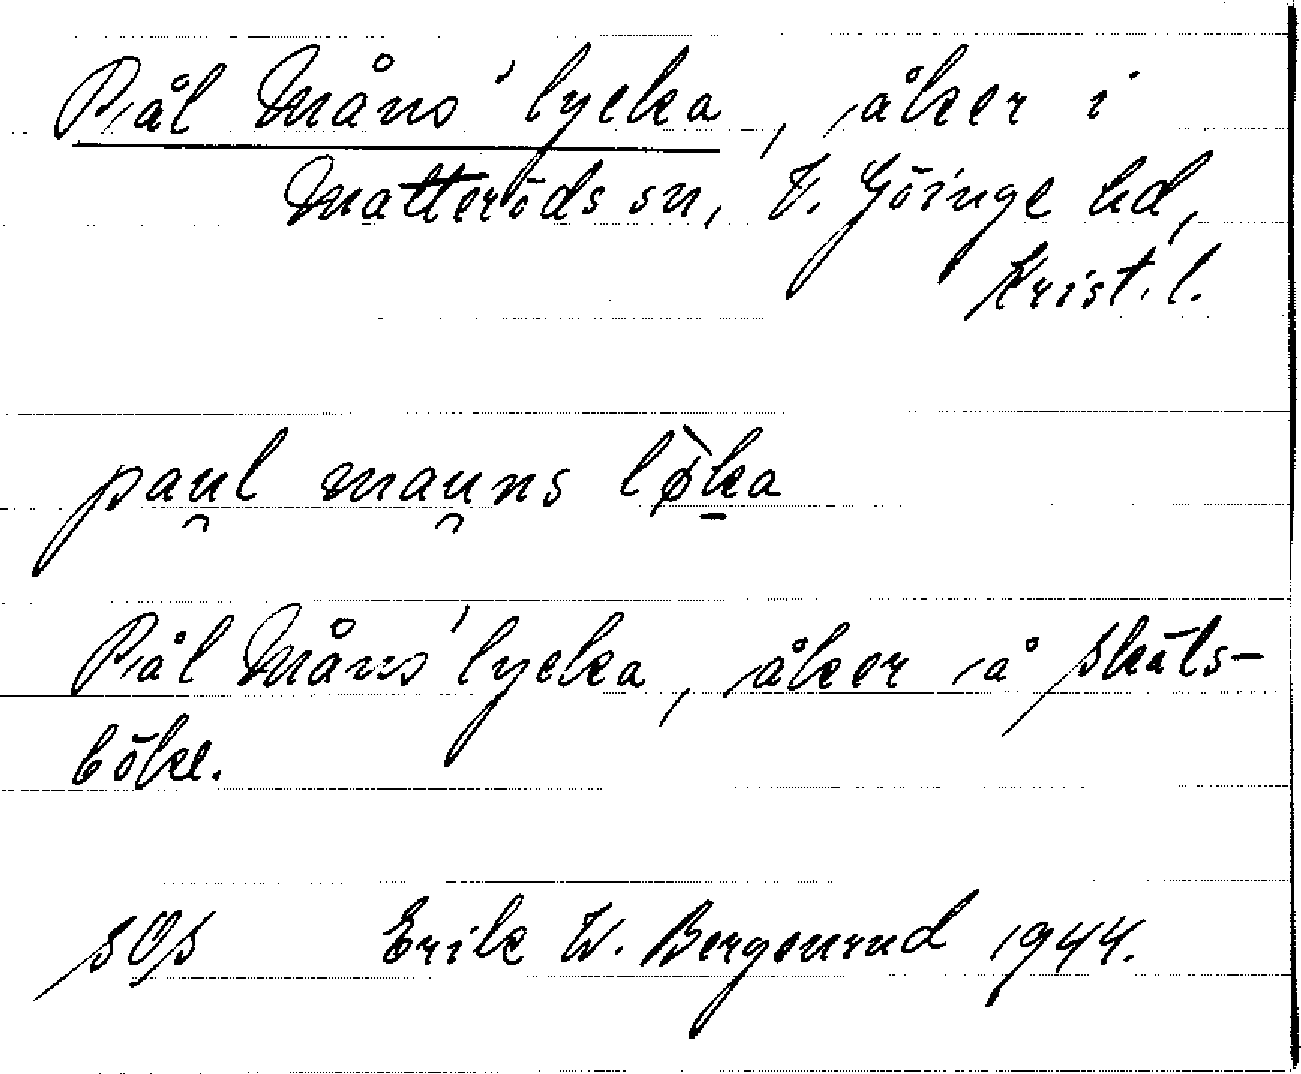 Pål Måns' lycka, åker i
Matteröds sn, V. Göinge hd,
Krist. l.
pau̯l mau̯ns lø̀ḵa
Pål Måns' lycka, åker å Skäls-
böke.
Erik W. Bergenrud 1944.